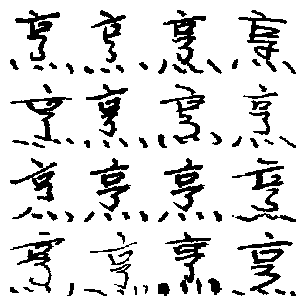 烹烹烹烹
烹烹烹烹
烹烹烹烹
烹烹烹烹